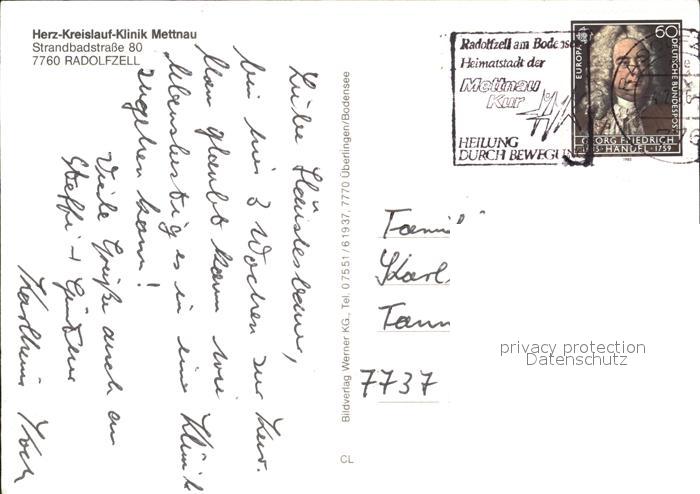 Herz-Kreislauf-Klinik Mettnau
Strandbadstraße 80
7760 RADOLFZELL
Liebe
bin nun 3 Wochen zur Kur.
Man glaubt kaum wie
lebenslustig es in einer Klinik
zugehen kann!
Viele Grüße auch an
Steffi +
Karlheinz
Bildverlag Werner KG., Tel. 07551/61937, 7770 Überlingen/Bodensee
CL
Radolfzell am Bodense
Heimatstadt der
Mettnau
Kur
HEILUNG
DURCH BEWEGUN
EUROPA
60
DEUTSCHE BUNDESPOST
GEORG FRIEDRICH
HÄNDEL 1759
1985
Fami
Karl
Tann
7737
privacy protection
Datenschutz